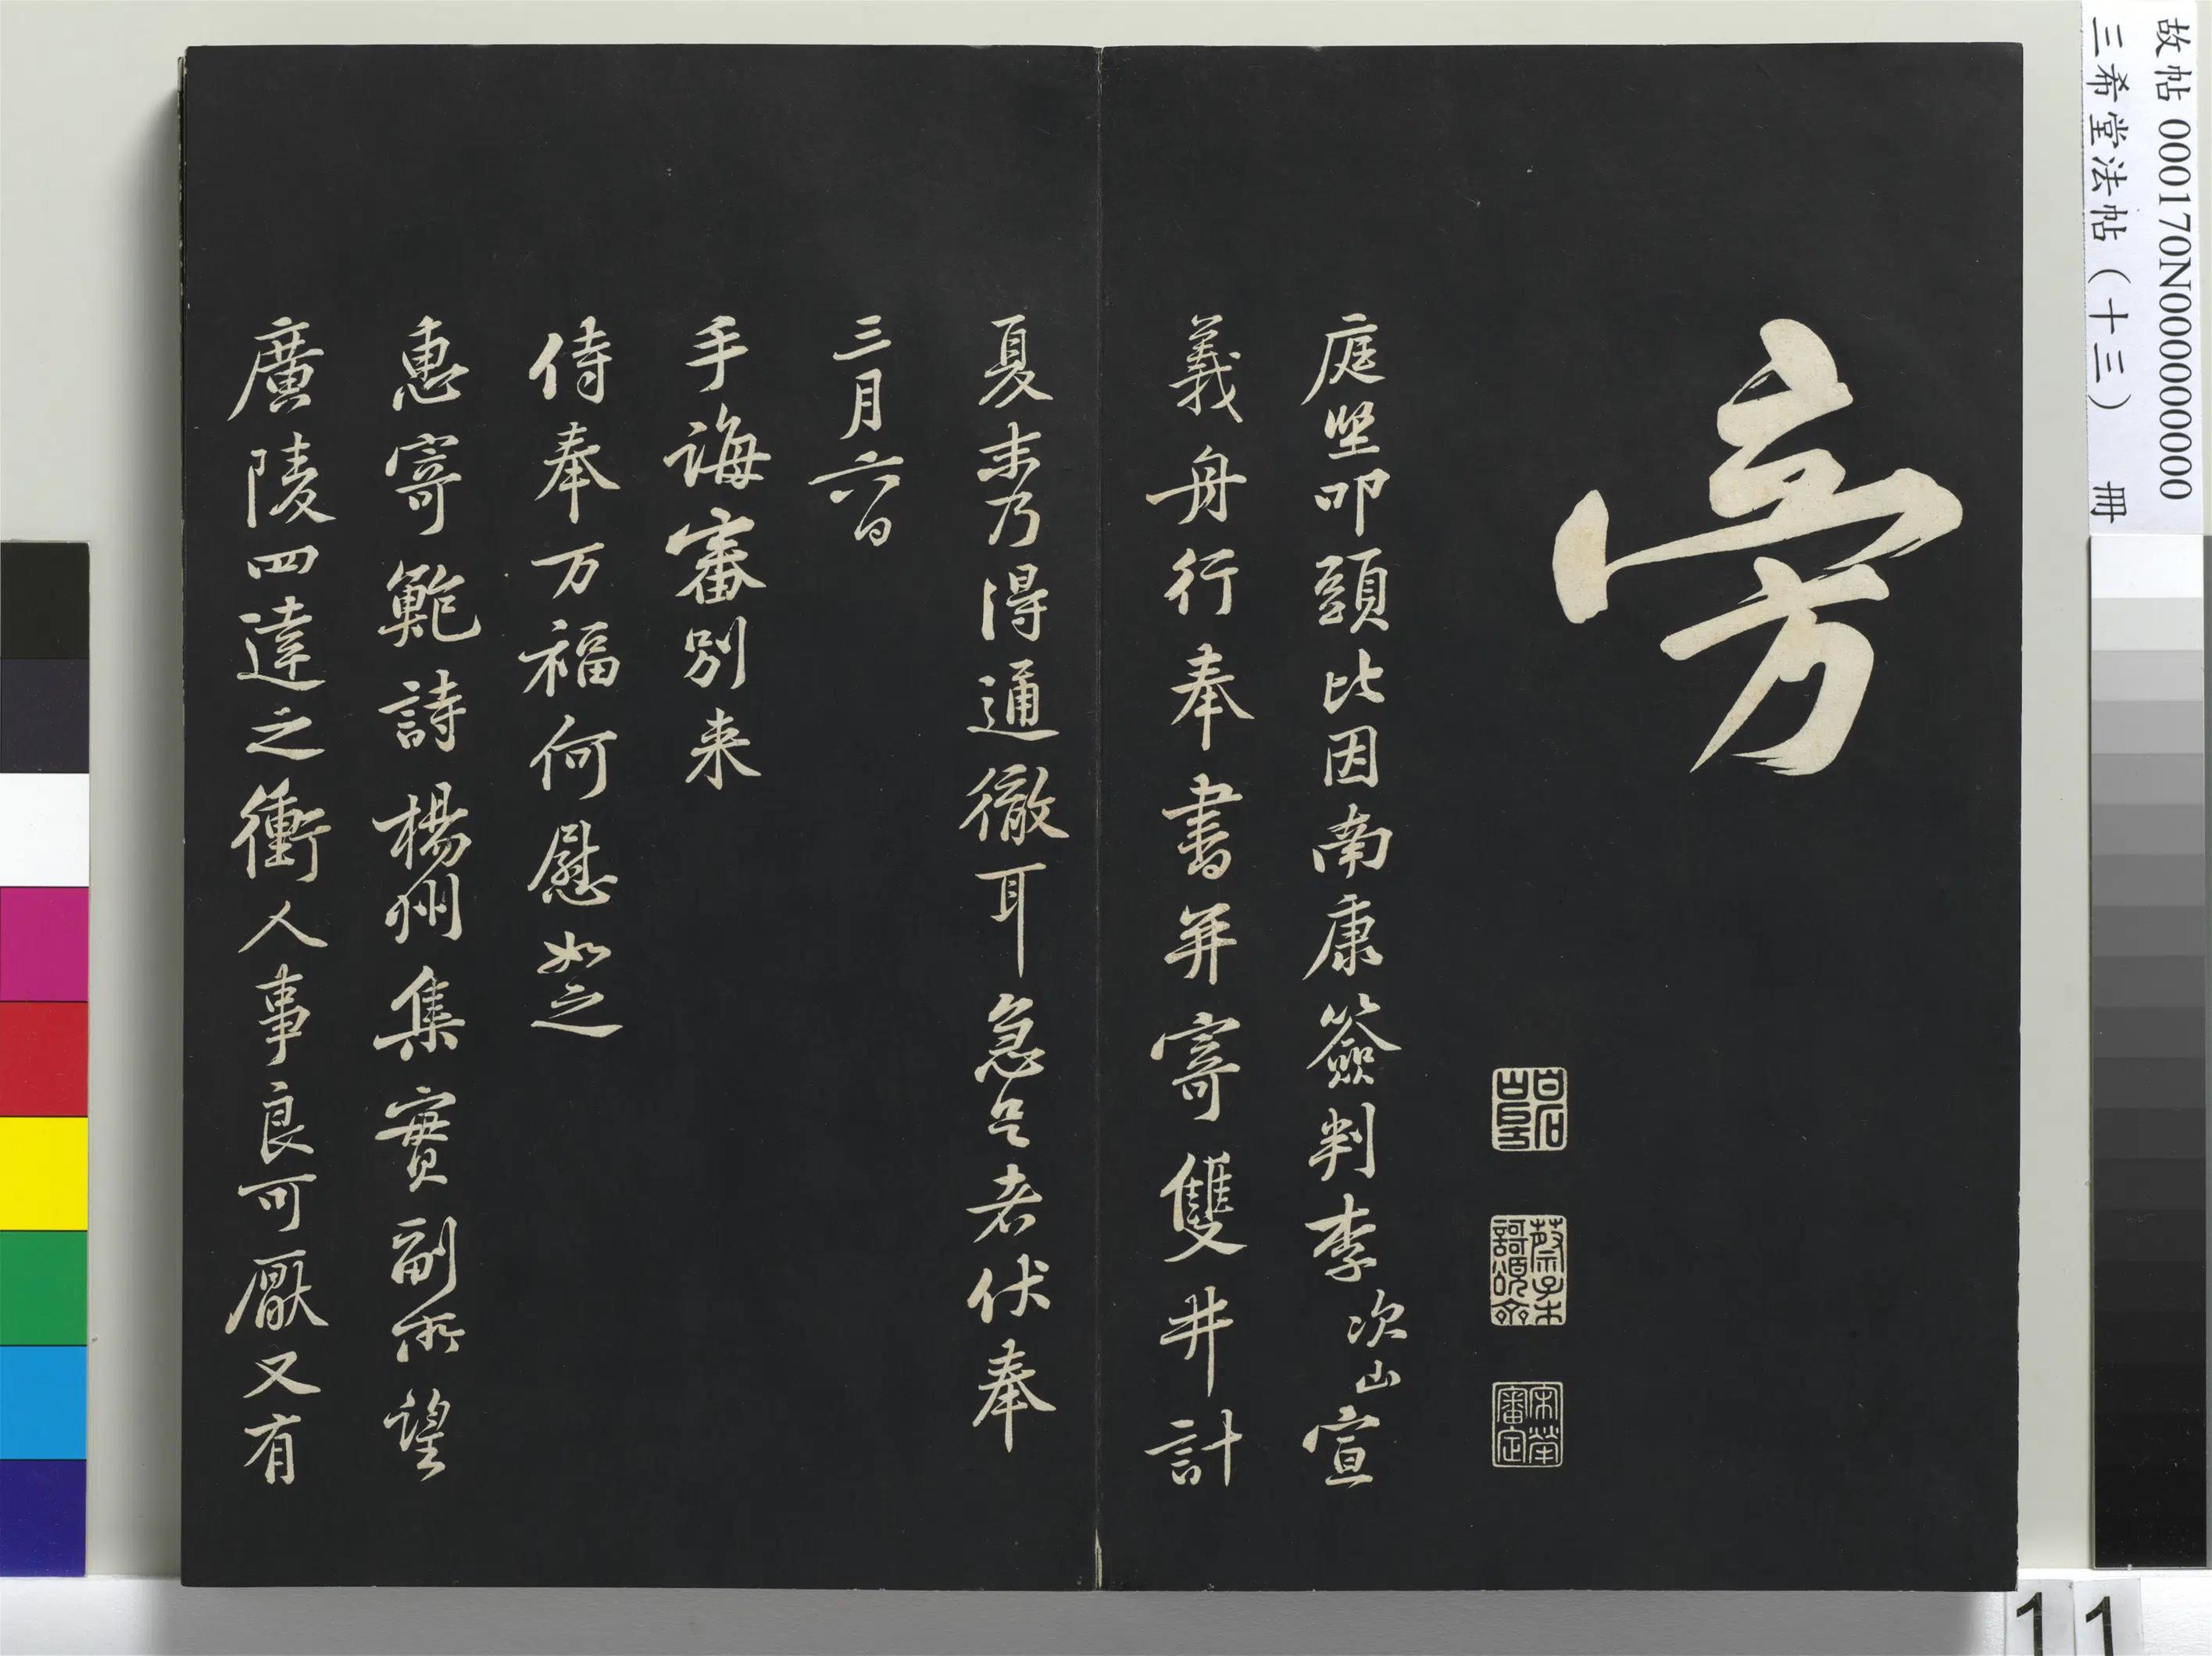 故帖 000170N000000000
三希堂法帖（十三） 冊
旁
庭堅叩頭比因南康簽判李次山宣
義舟行奉書并寄雙井計
夏末乃得通徹耳急足者伏奉
三月六日
手誨審別来
侍奉万福何慰如之
惠寄鮑詩楊州集實副所望
廣陵四達之衝人事良可厭又有
宋犖審定
11